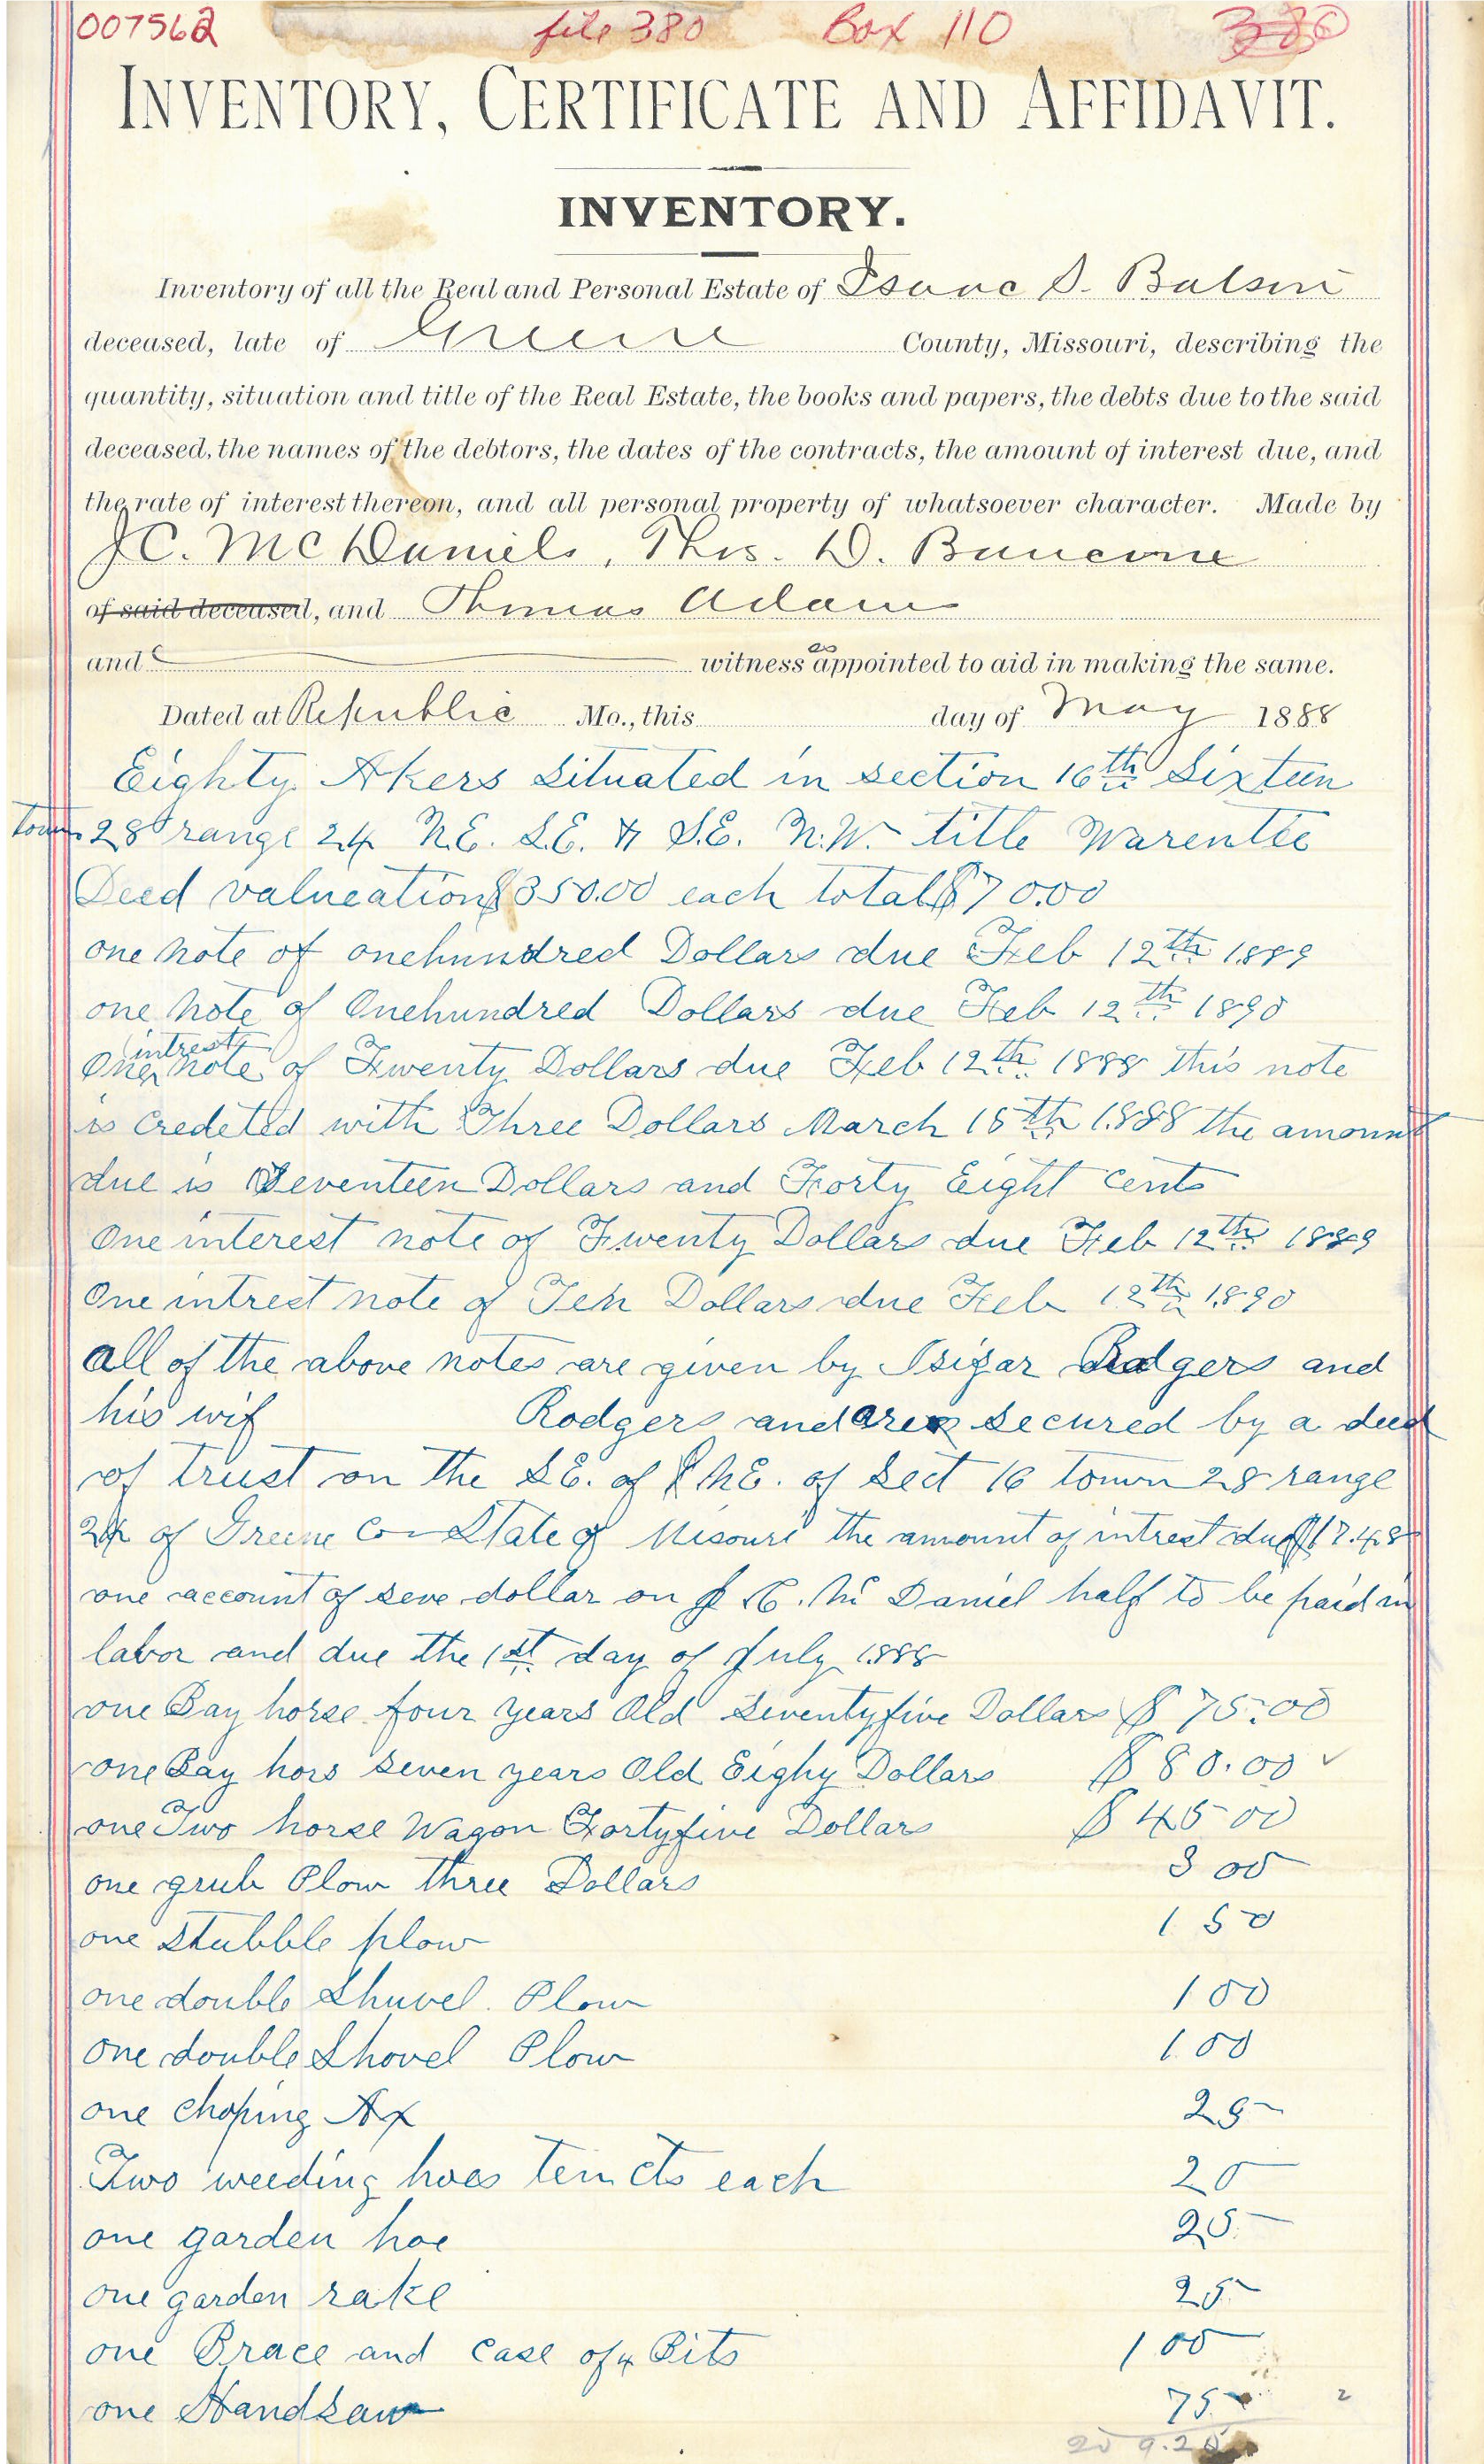 007562 file 380 Box 110 380
INVENTORY, CERTIFICATE AND AFFIDAVIT.
INVENTORY.
Inventory of all the Real and Personal Estate of Isaac S. Batson
deceased, late of Greene County, Missouri, describing the
quantity, situation and title of the Real Estate, the books and papers, the debts due to the said
deceased, the names of the debtors, the dates of the contracts, the amount of interest due, and
the rate of interest thereon, and all personal property of whatsoever character. Made by
J C. McDaniels, Thos. D.
of said deceased, and Thomas Adam
and witness as appointed to aid in making the same.
Dated at Republic Mo., this day of May 1888
Eighty Akers Situated in section 16th Sixteen
town 28 range 24 N.E. S.E. & S.E. N.W. title Warentee
Deed valueation $350.00 each total $700.00
one note of onehundred Dollars due Feb 12th 1889
one note of Onehundred Dollars due Feb 12th 1890
One intrest note of Twenty Dollars due Feb 12th 1888 this note
is Credeted with Three Dollars March 15th 1888 the amount
due is Seventeen Dollars and Forty Eight Cents
One interest note of Twenty Dollars due Feb 12th 1889
One intrest note of Ten Dollars due Feb 12th 1890
all of the above notes are given by Rodgers and
his wif Rodgers and are secured by a deed
of trust on the S.E. of N.E. of Sect 16 town 28 range
24 of Greene Co State of Misouri the amount of intrest due $17.48
one account of seve dollar on J C. Mc Daniel half to be paid in
labor and due the 1st day of July 1888
one Bay horse four years Old Seventyfive Dollars $ 75.00
one Bay hors seven years Old Eighy Dollars $ 80.00 ✓
one Two horse Wagon Fortyfive Dollars $ 45 00
one grub Plow three Dollars 3 00
one stubble plow 1 50
one double Shuvel Plow 1 00
one double Shovel Plow 1.00
one choping Ax 25
Two weeding hoes ten cts each 20
one garden hoe 25
one garden rake 25
one Brace and case of 4 Bits 1 00
one Handsaw 75
209.20